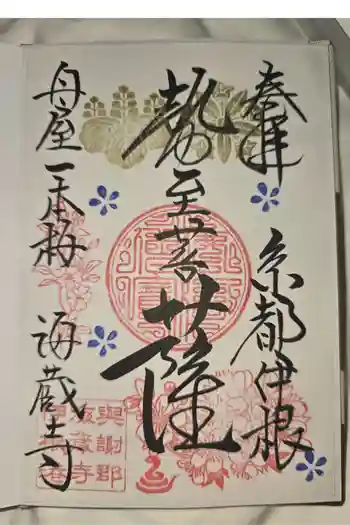 奉拝
京都伊根
勢至菩薩
舟屋一本梅
海蔵寺
與謝郡